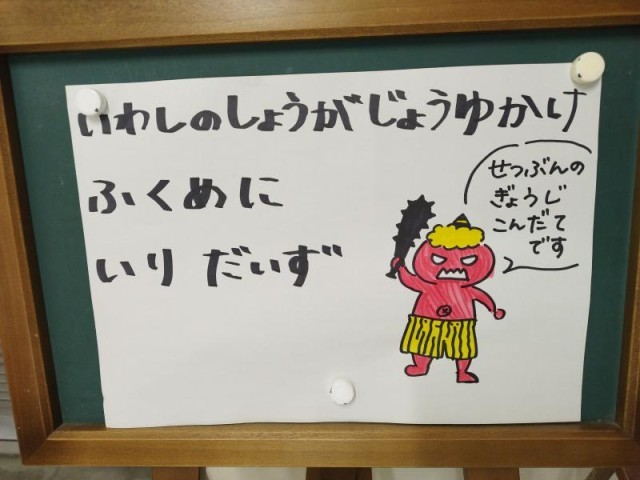 いわしのしょうがじょうゆかけ
ふくめに
いり だいず
せつぶんの
ぎょうじ
こんだて
です